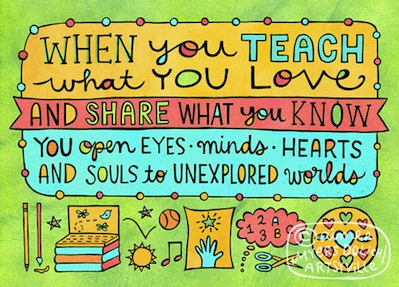 WHEN you TEACH
what YOU LOVE
AND SHARE WHAT you KNOW
YOU open EYES · minds · HEARTS
AND SOULS to UNEXPLORED worlds